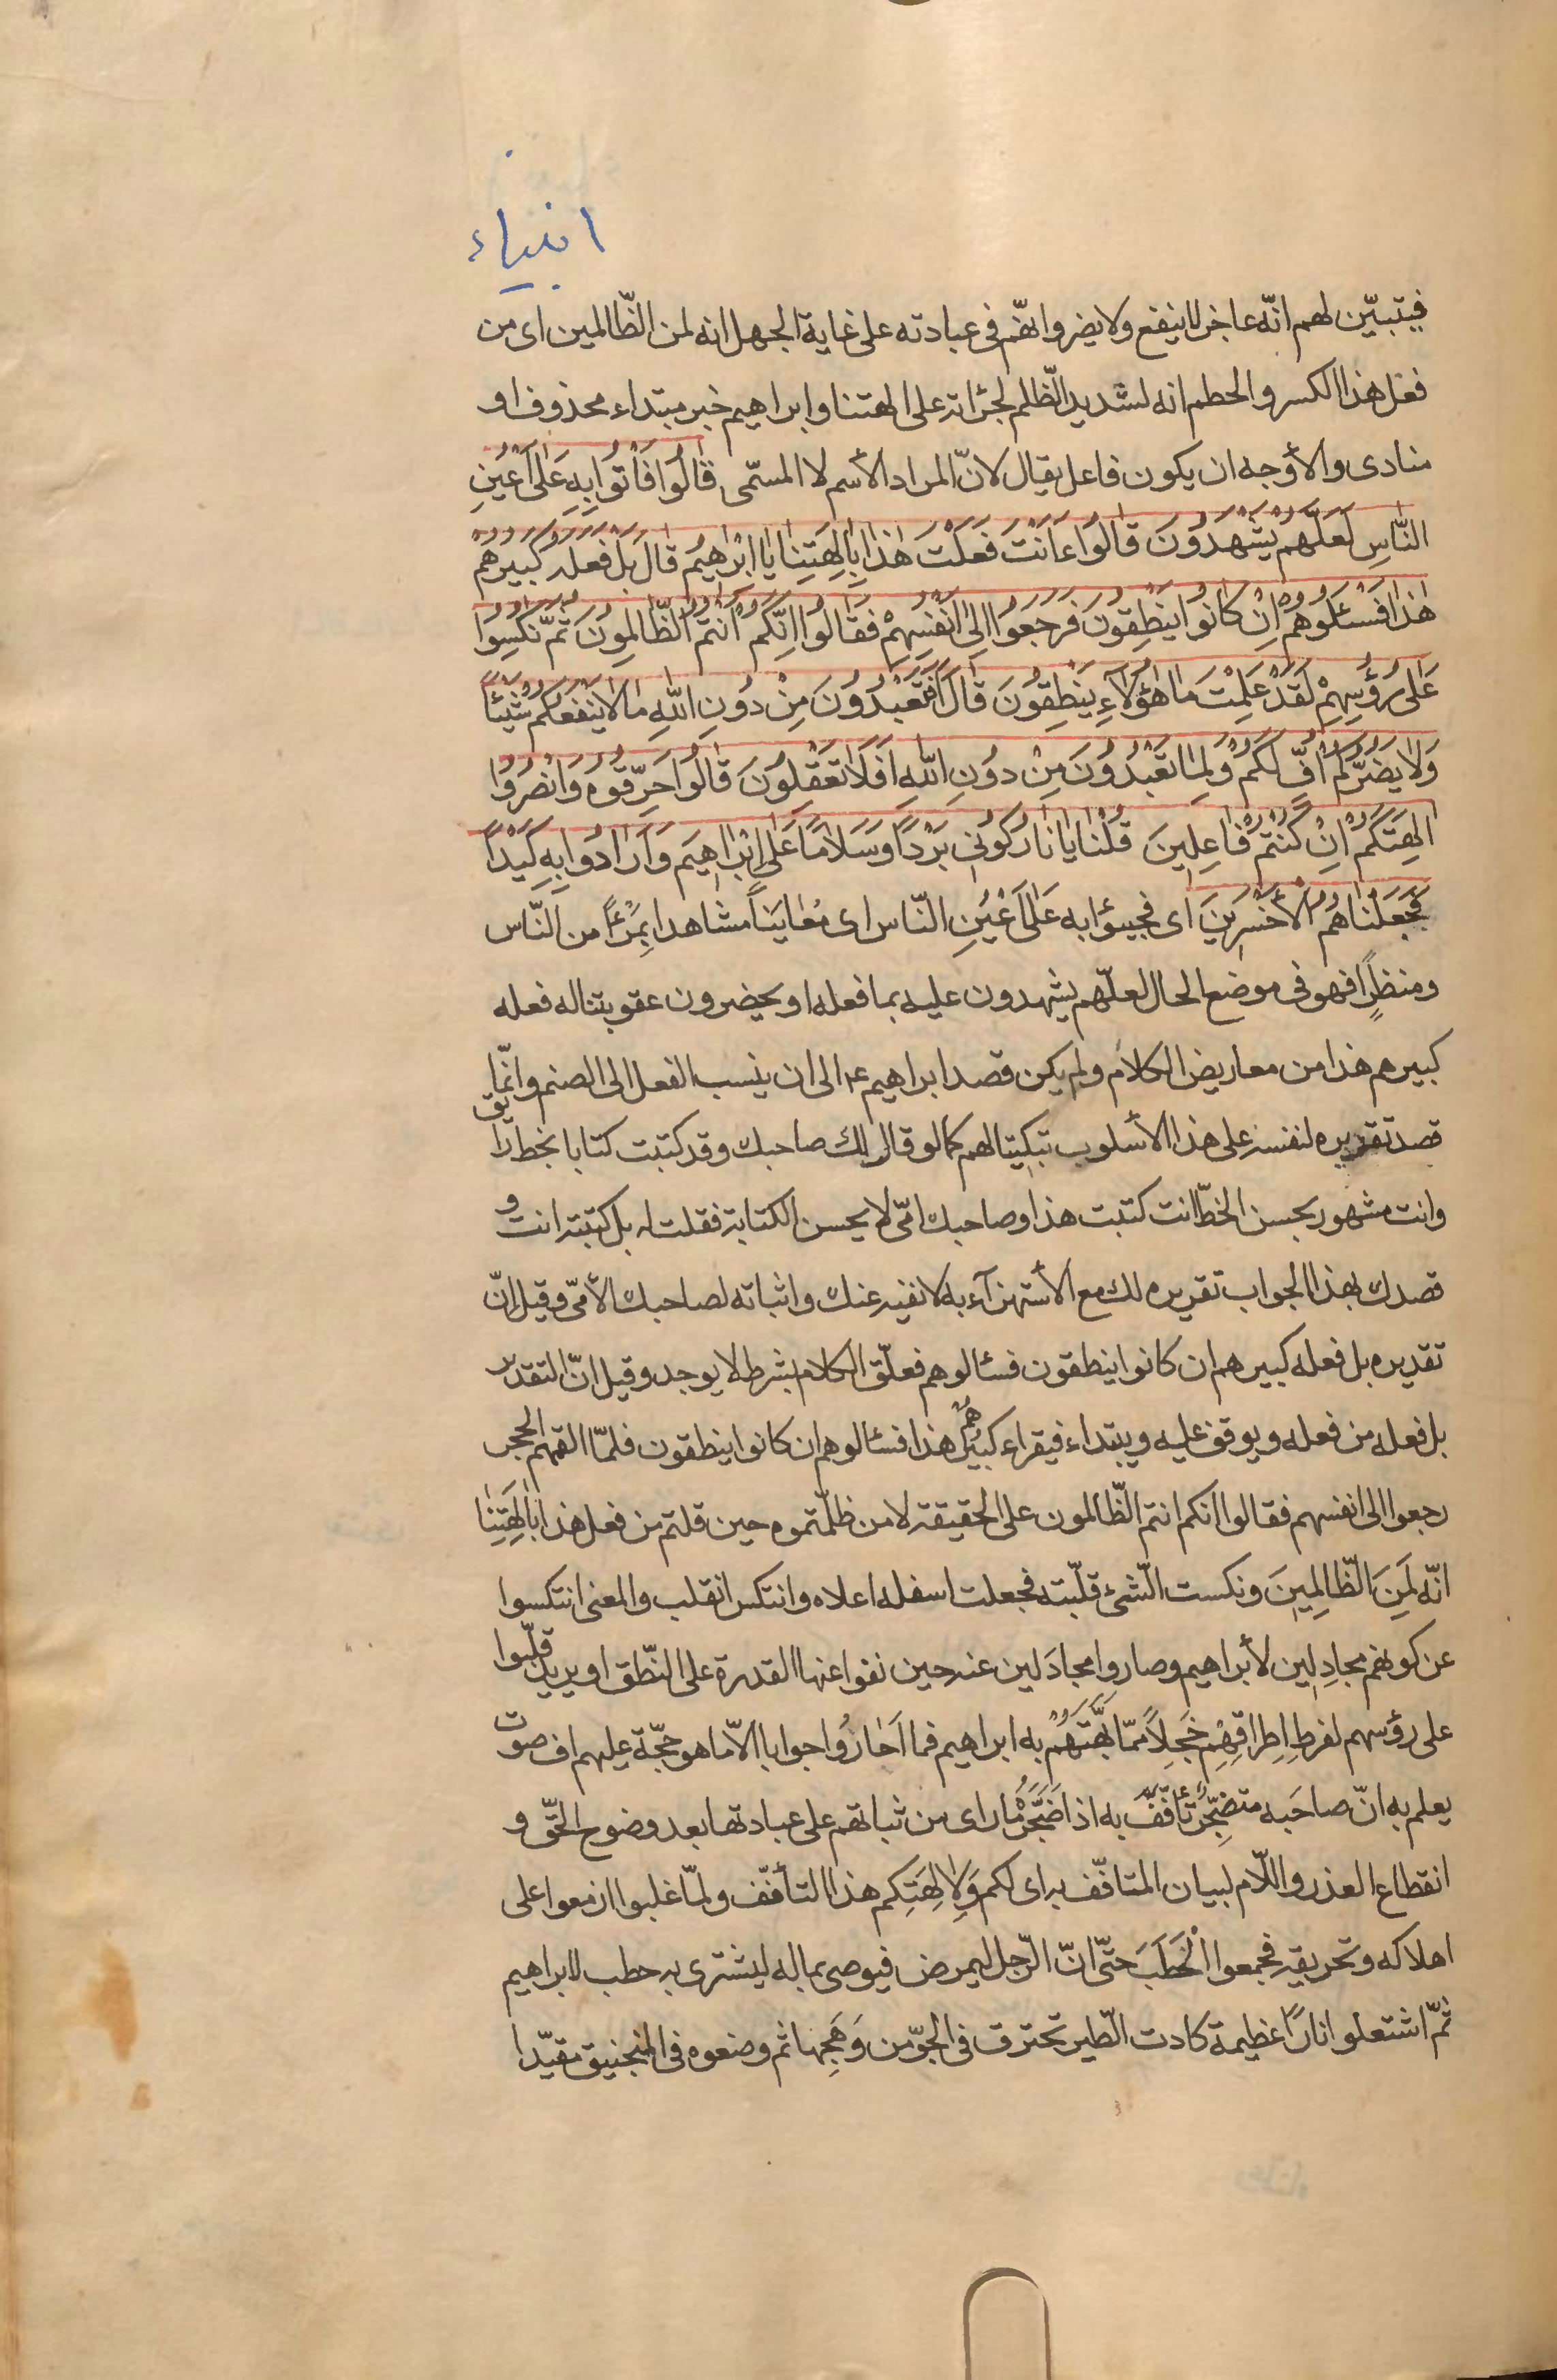 انبياء
فيتبيّن لهم انّه عاجز لا ينفع ولا يضر وانّهم فى عبادته على غاية الجهل انه لمن الظّالمين اى من
فعل هذا الكسر والحطم انه لشديد الظّلم لجرٔاته على الهتنا وابراهيم خبر مبتداء محذوف او
منادى والأوجه ان يكون فاعل يقال لانّ المراد الأسم لا المسمّى قَالُوا فَأْتُوا بِهِ عَلَى اَعْيُنِ
النَّاسِ لَعَلَّهُمْ يَشْهَدُونَ قَالُوا ءَاَنْتَ فَعَلْتَ هٰذَا بِاٰلِهَتِنَا يَا اِبْرٰهِيمُ قَالَ بَلْ فَعَلَهُ كَبِيرُهُمْ
هٰذَا فَسْئَلُوهُمْ اِنْ كَانُوا يَنْطِقُونَ فَرَجَعُوا اِلَى اَنْفُسِهِمْ فَقَالُوا اِنَّكُمْ اَنْتُمُ الظَّالِمُونَ ثُمَّ نُكِسُوا
عَلَى رُؤُسِهِمْ لَقَدْ عَلِمْتَ مَا هٰؤُلَاءِ يَنْطِقُونَ قَالَ اَفَتَعْبُدُونَ مِنْ دُونِ اللّٰهِ مَا لَا يَنْفَعُكُمْ شَيْئًا
وَلَا يَضُرُّكُمْ اُفٍّ لَكُمْ وَلِمَا تَعْبُدُونَ مِنْ دُونِ اللّٰهِ اَفَلَا تَعْقِلُونَ قَالُوا حَرِّقُوهُ وَانْصُرُوا
اٰلِهَتَكُمْ اِنْ كُنْتُمْ فَاعِلِينَ قُلْنَا يَا نَارُ كُونِى بَرْدًا وَسَلَامًا عَلَى اِبْرَاهِيمَ وَاَرَادُوا بِهِ كَيْدًا
فَجَعَلْنَاهُمُ الْأَخْسَرِينَ اى فجيئوا به عَلَى اَعْيُنِ النّاس اى مُعَايَنًا مشاهدا بِمَرْءًا من النّاس
ومنظرًا فهو فى موضع الحال لعلّهم يشهدون عليه بما فعله او يحضرون عقوبتنا له فعله
كبيرهم هذا من معاريض الكلام ولم يكن قصد ابراهيم ع الى ان ينسب الفعل الى الصنم وانّما
قصد تقريره لنفسه على هذا الأسلوب تبكيتا لهم كما لو قال لك صاحبك وقد كتبت كتابا بخط رايق
وانت مشهور بحسن الخطّ ءانت كتبت هذا وصاحبك امّى لا يحسن الكتابة فقلت له بل كتبته انت و
قصدك بهذا الجواب تقريره لك مع الأستهزآء به لا نفيه عنك واثباته لصاحبك الأمّى وقيل انّ
تقديره بل فعله كبيرهم ان كانوا ينطقون فسئالوهم فعلّق الكلام بشرط لا يوجد وقيل انّ التقدير
بل فعله من فعله ويوقف عليه ويبتداء فيقراء كبيرُهُمْ هذا فسئالوهم ان كانوا ينطقون فلمّا القمهم الحجر
رجعوا الى انفسهم فقالوا انكم انتم الظّالمون على الحقيقة لا من ظلّمتموه حين قلتم من فعل هذا بِاٰلِهَتِنَا
انّه لَمِنَ الظَّالِمِينَ ونكست الشّىء قلّبته فجعلت اسفله اعلاه وانتكس انقلب والمعنى انتكسوا
عن كونهم مجادِلين لأبراهيم وصاروا مجادَلين عنه حين نفوا عنها القدرة على النّطق او يريد قلّبوا
على رؤسهم لفرطِ اِطراقِهِمْ خَجِلاً ممّا بَهَّتَهُمْ به ابراهيم فما اَحَارُوا جوابا الّا ما هو حجّة عليهم اف صوت
يعلم به انّ صاحَبه متضجّرٌ تأفّفَ به اذ اَضْجَرَهُ ما راى من ثباتهم على عبادتها بعد وضوح الحّق و
انقطاع العذر واللّام لبيان المتافّف به اى لكم وَلِاٰلِهَتِكم هذا التأفّف ولمّا غلبوا ازمعوا على
اهلاكه وتحريقه فجمعوا الْحَطَبَ حتّى انّ الرّجل ليمرض فيوصى بماله ليشترى به حطب لابراهيم
ثمّ اشتعلوا نارًا عظيمة كادت الطّير تحترق فى الجوّ من وَهَجِها ثم وضعوه فى المنجنيق مقيّدا